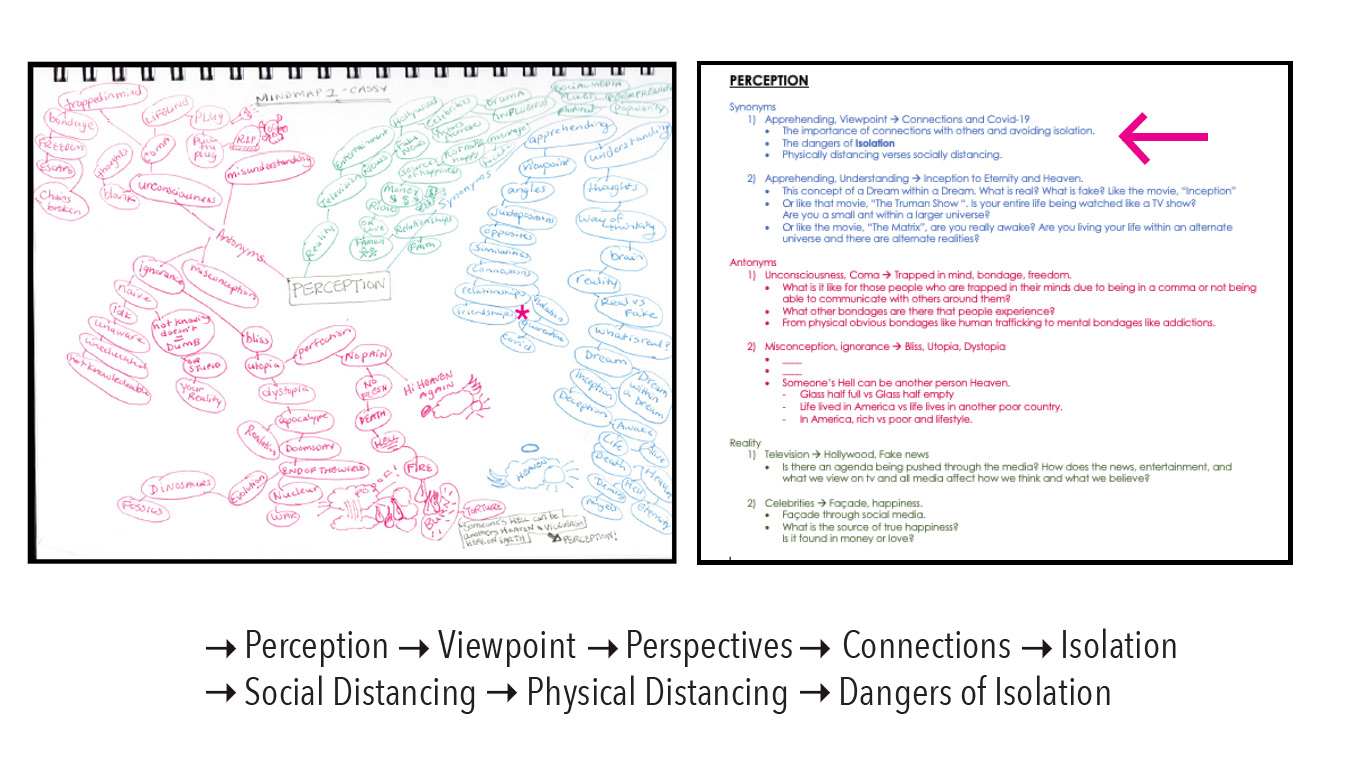 MINDMAP 2 - CASSY
trapped in mind
bondage
FREEDOM
ESCAPE
Chains
broken
LIFELINE
PLUG
Pull
the
plug
R.I.P
coma
thoughts
blank
unconsciousness
misunderstanding
Antonyms
PERCEPTION
ignorance
misconception
naive
Idk
unaware
uneducated
not knowledgeable
not knowing
doesn't
=
DUMB
OR
STUPID
your
Reality
bliss
utopia
perfection
NO PAIN
NO
FLESH
DEATH
HELL
FIRE
TORTURE
Hi HEAVEN
AGAIN
dystopia
apocalypse
Revelation
DOOMSDAY
END OF THE WORLD
Evolution
DINOSAURS
FOSSILS
Nuclear
WAR
Reality
Television
Entertainment
News
Hollywood
Fake
News
Celebrities
DRAMA
INFLUENCE
SOCIAL MEDIA
LIKES
popularity
Source
of happiness
Money
$ $ $
Riches
OR
LOVE
FAMILY
Relationships
FAITH
Synonyms
apprehending
understanding
viewpoint
angles
Juxtapositions
opposites
Similarities
Connections
relationships
friendships
*
Isolation
Quarantine
Covid
thoughts
Way of
thinking
brain
reality
Real vs
Fake
What is real?
Dream
Inception
Deception
Dream
within
a Dream
Awake
Life
Death
Alive
Heaven
Hell
Demons
Angels
Eternity
HEAVEN
Someone's HELL can be
another's HEAVEN & VICE VERSA
HERE ON EARTH
PERCEPTION!
PERCEPTION
Synonyms
1) Apprehending, Viewpoint → Connections and Covid-19
• The importance of connections with others and avoiding isolation.
• The dangers of Isolation
• Physically distancing verses socially distancing.
2) Apprehending, Understanding → Inception to Eternity and Heaven.
• This concept of a Dream within a Dream. What is real? What is fake? Like the movie, "Inception"
• Or like that movie, "The Truman Show ". Is your entire life being watched like a TV show?
Are you a small ant within a larger universe?
• Or like the movie, "The Matrix", are you really awake? Are you living your life within an alternate
universe and there are alternate realities?
Antonyms
1) Unconsciousness, Coma → Trapped in mind, bondage, freedom.
• What is it like for those people who are trapped in their minds due to being in a comma or not being
able to communicate with others around them?
• What other bondages are there that people experience?
• From physical obvious bondages like human trafficking to mental bondages like addictions.
2) Misconception, ignorance → Bliss, Utopia, Dystopia
• ____
• ____
• Someone's Hell can be another person Heaven.
- Glass half full vs Glass half empty
- Life lived in America vs life lives in another poor country.
- In America, rich vs poor and lifestyle.
Reality
1) Television → Hollywood, Fake news
• Is there an agenda being pushed through the media? How does the news, entertainment, and
what we view on tv and all media affect how we think and what we believe?
2) Celebrities → Façade, happiness.
Façade through social media.
• What is the source of true happiness?
Is it found in money or love?
→ Perception → Viewpoint → Perspectives → Connections → Isolation
→ Social Distancing → Physical Distancing → Dangers of Isolation